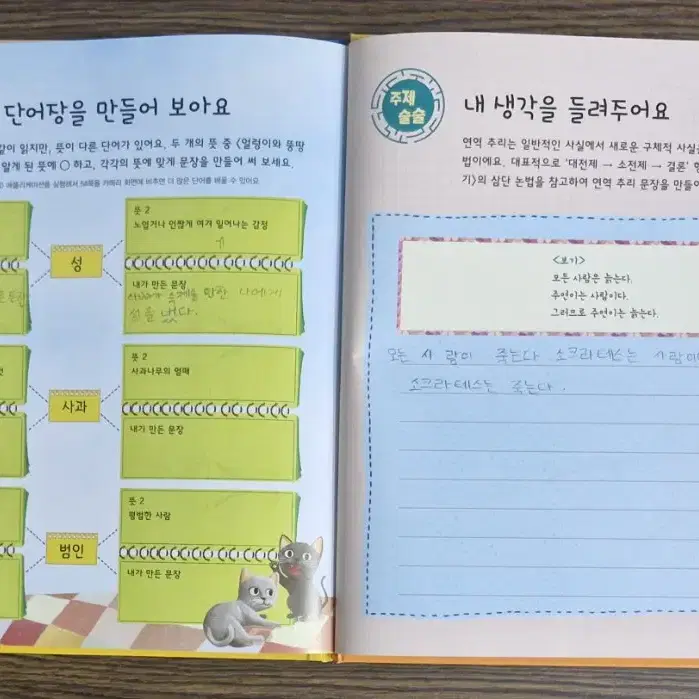 단어장을 만들어 보아요
같이 읽지만, 뜻이 다른 단어가 있어요. 두 개의 뜻 중 <얼렁이와 뚱땅
알게 된 뜻에 ○ 하고, 각각의 뜻에 맞게 문장을 만들어 써 보세요.
애플리케이션을 실행해서 화면에 비추면 더 많은 단어를 배울 수 있어요
성
뜻 2
노엽거나 언짢게 여겨 일어나는 감정
내가 만든 문장
숙제를 안한 나에게
성을 냈다.
사과
뜻 2
사과나무의 열매
내가 만든 문장
범인
뜻 2
평범한 사람
내가 만든 문장
주제
술술
내 생각을 들려주어요
연역 추리는 일반적인 사실에서 새로운 구체적 사실
법이에요. 대표적으로 '대전제 → 소전제 → 결론' 형
기>의 삼단 논법을 참고하여 연역 추리 문장을 만들어
<보기>
모든 사람은 늙는다.
주연이는 사람이다.
그러므로 주연이는 늙는다.
모든 사람이 죽는다 소크라테스는 사람이
소크라테스는 죽는다.